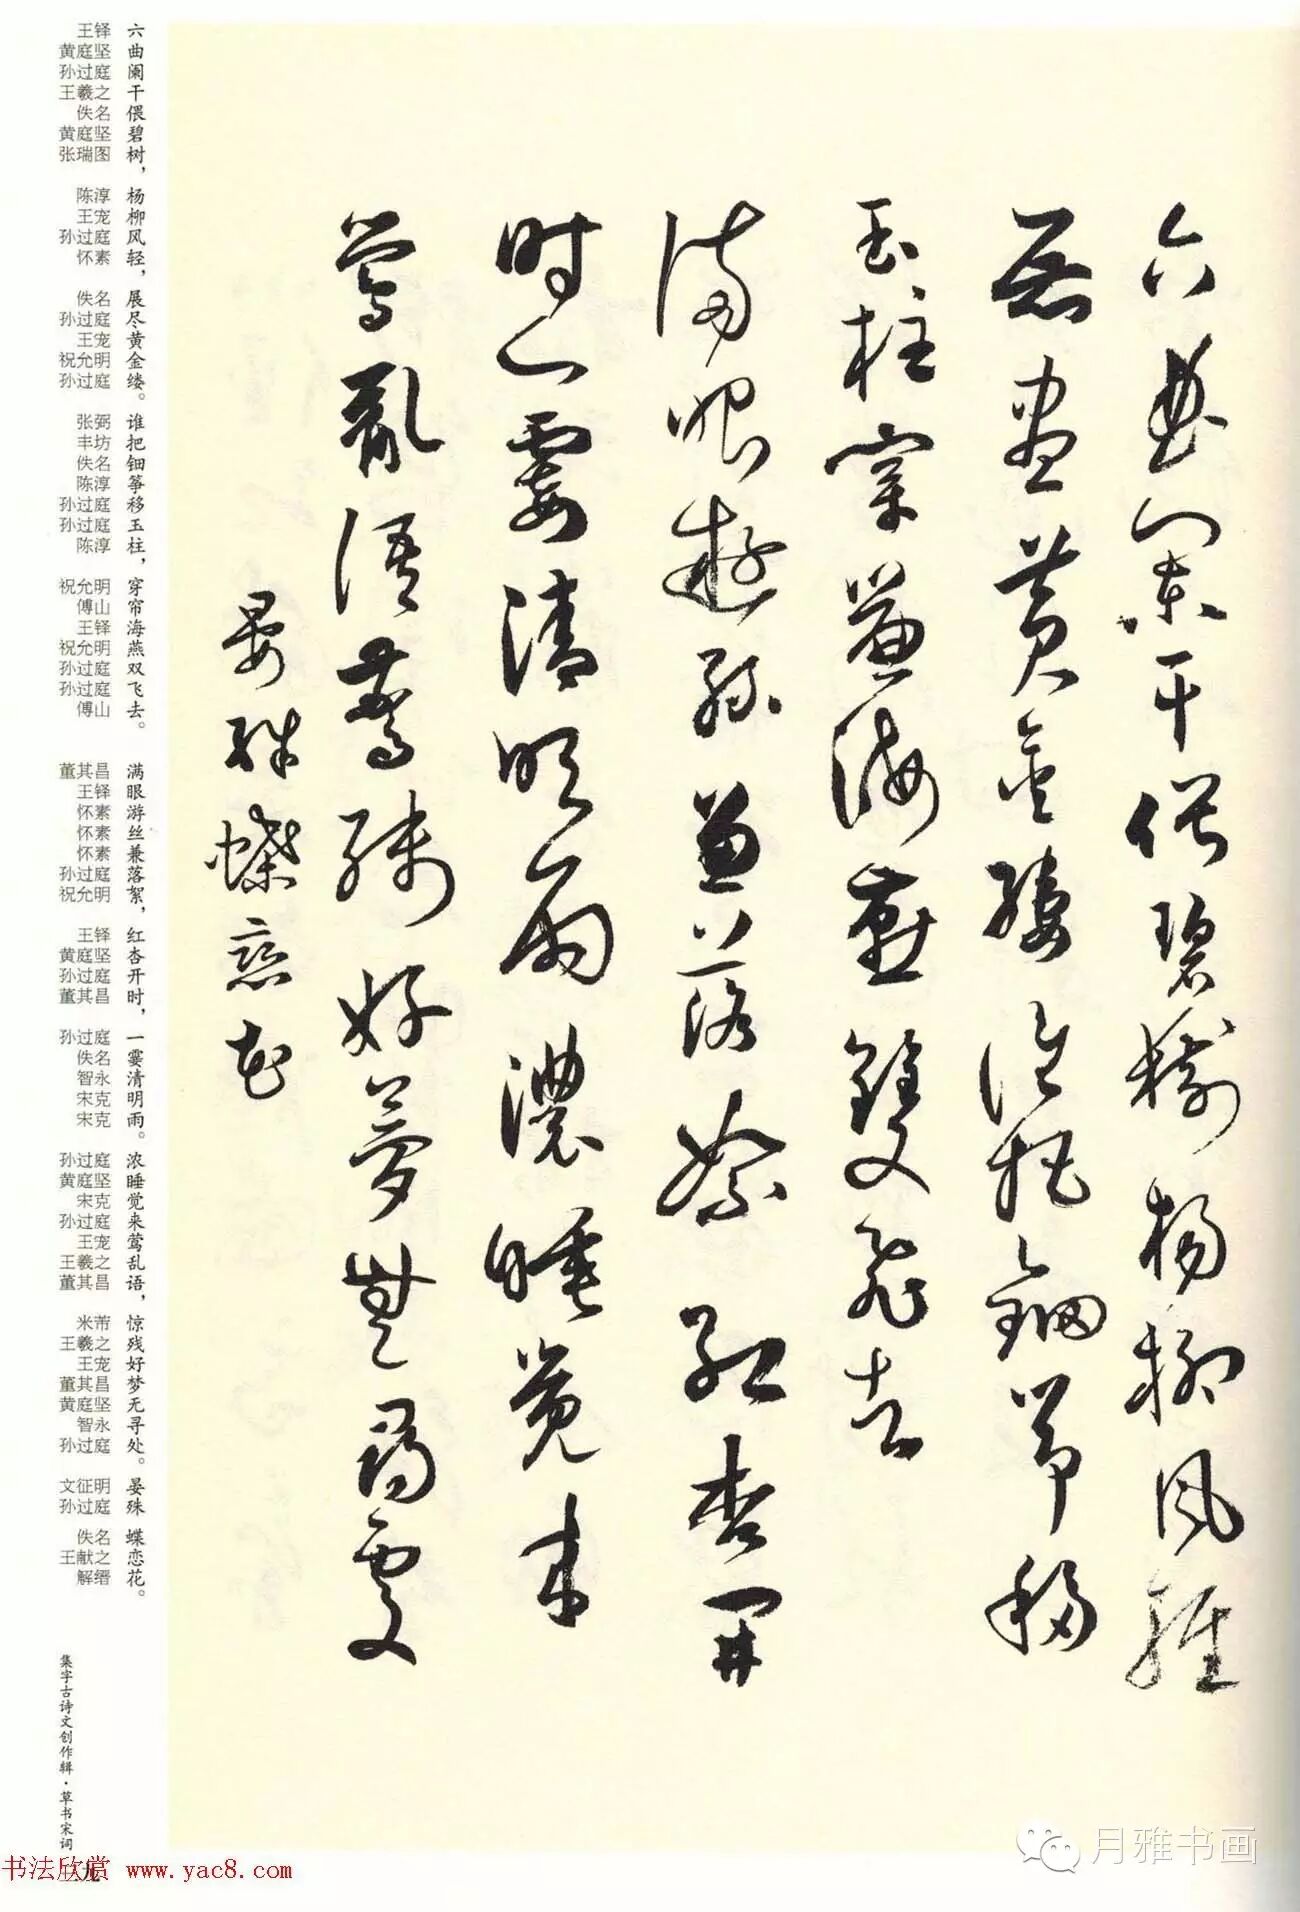 六曲闌干偎碧樹楊柳風輕
展盡黃金縷誰把鈿箏移
玉柱穿簾海燕雙飛去
滿眼遊絲兼落絮紅杏開
時一霎清明雨濃睡覺來
鶯亂語驚殘好夢無尋處
晏殊蝶戀花
六曲阑干偎碧树，杨柳风轻，展尽黄金缕。谁把钿筝移玉柱，穿帘海燕双飞去。 满眼游丝兼落絮，红杏开时，一霎清明雨。浓睡觉来莺乱语，惊残好梦无寻处。 晏殊 蝶恋花。
王铎 黄庭坚 孙过庭 王羲之 佚名 黄庭坚 张瑞图 陈淳 王宠 孙过庭 怀素 佚名 孙过庭 王宠 祝允明 孙过庭 张弼 丰坊 佚名 陈淳 孙过庭 孙过庭 陈淳 祝允明 傅山 王铎 祝允明 孙过庭 孙过庭 傅山 董其昌 王铎 怀素 怀素 怀素 孙过庭 祝允明 王铎 黄庭坚 孙过庭 董其昌 孙过庭 佚名 智永 宋克 宋克 孙过庭 黄庭坚 宋克 孙过庭 王宠 王羲之 董其昌 米芾 王羲之 王宠 董其昌 黄庭坚 智永 孙过庭 文征明 孙过庭 佚名 王献之 解缙
集字古诗文创作辑·草书宋词
书法欣赏 www.yac8.com
月雅书画